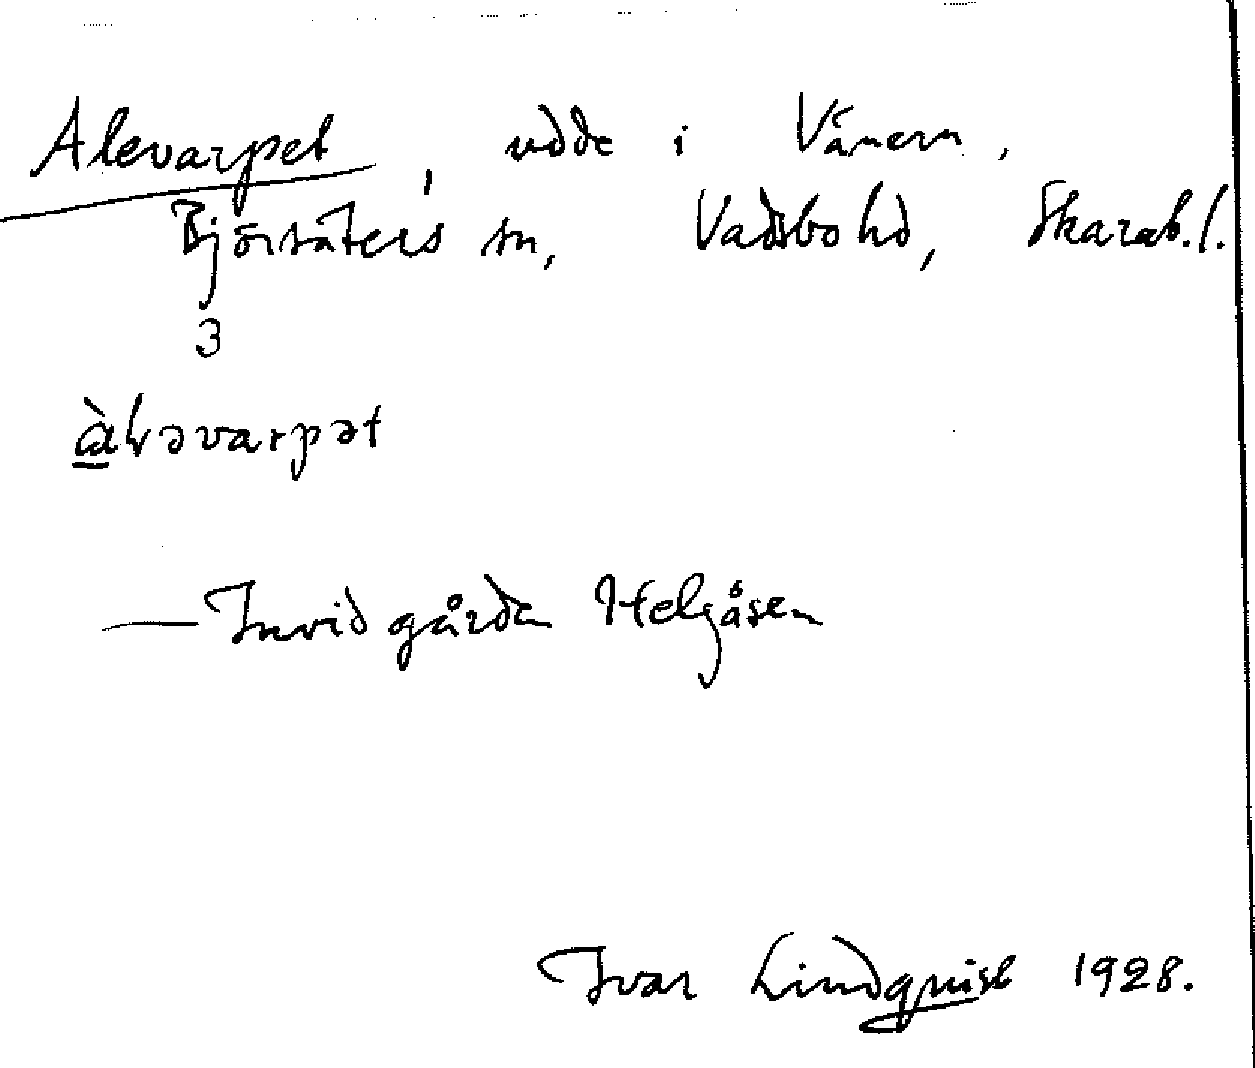 Alevarpet, udde i Vänern,
Björsäters sn, Vadsbo hd, Skarab. l.
3
àləvarpət
— Invid gården Helgåsen
Ivar Lindquist 1928.